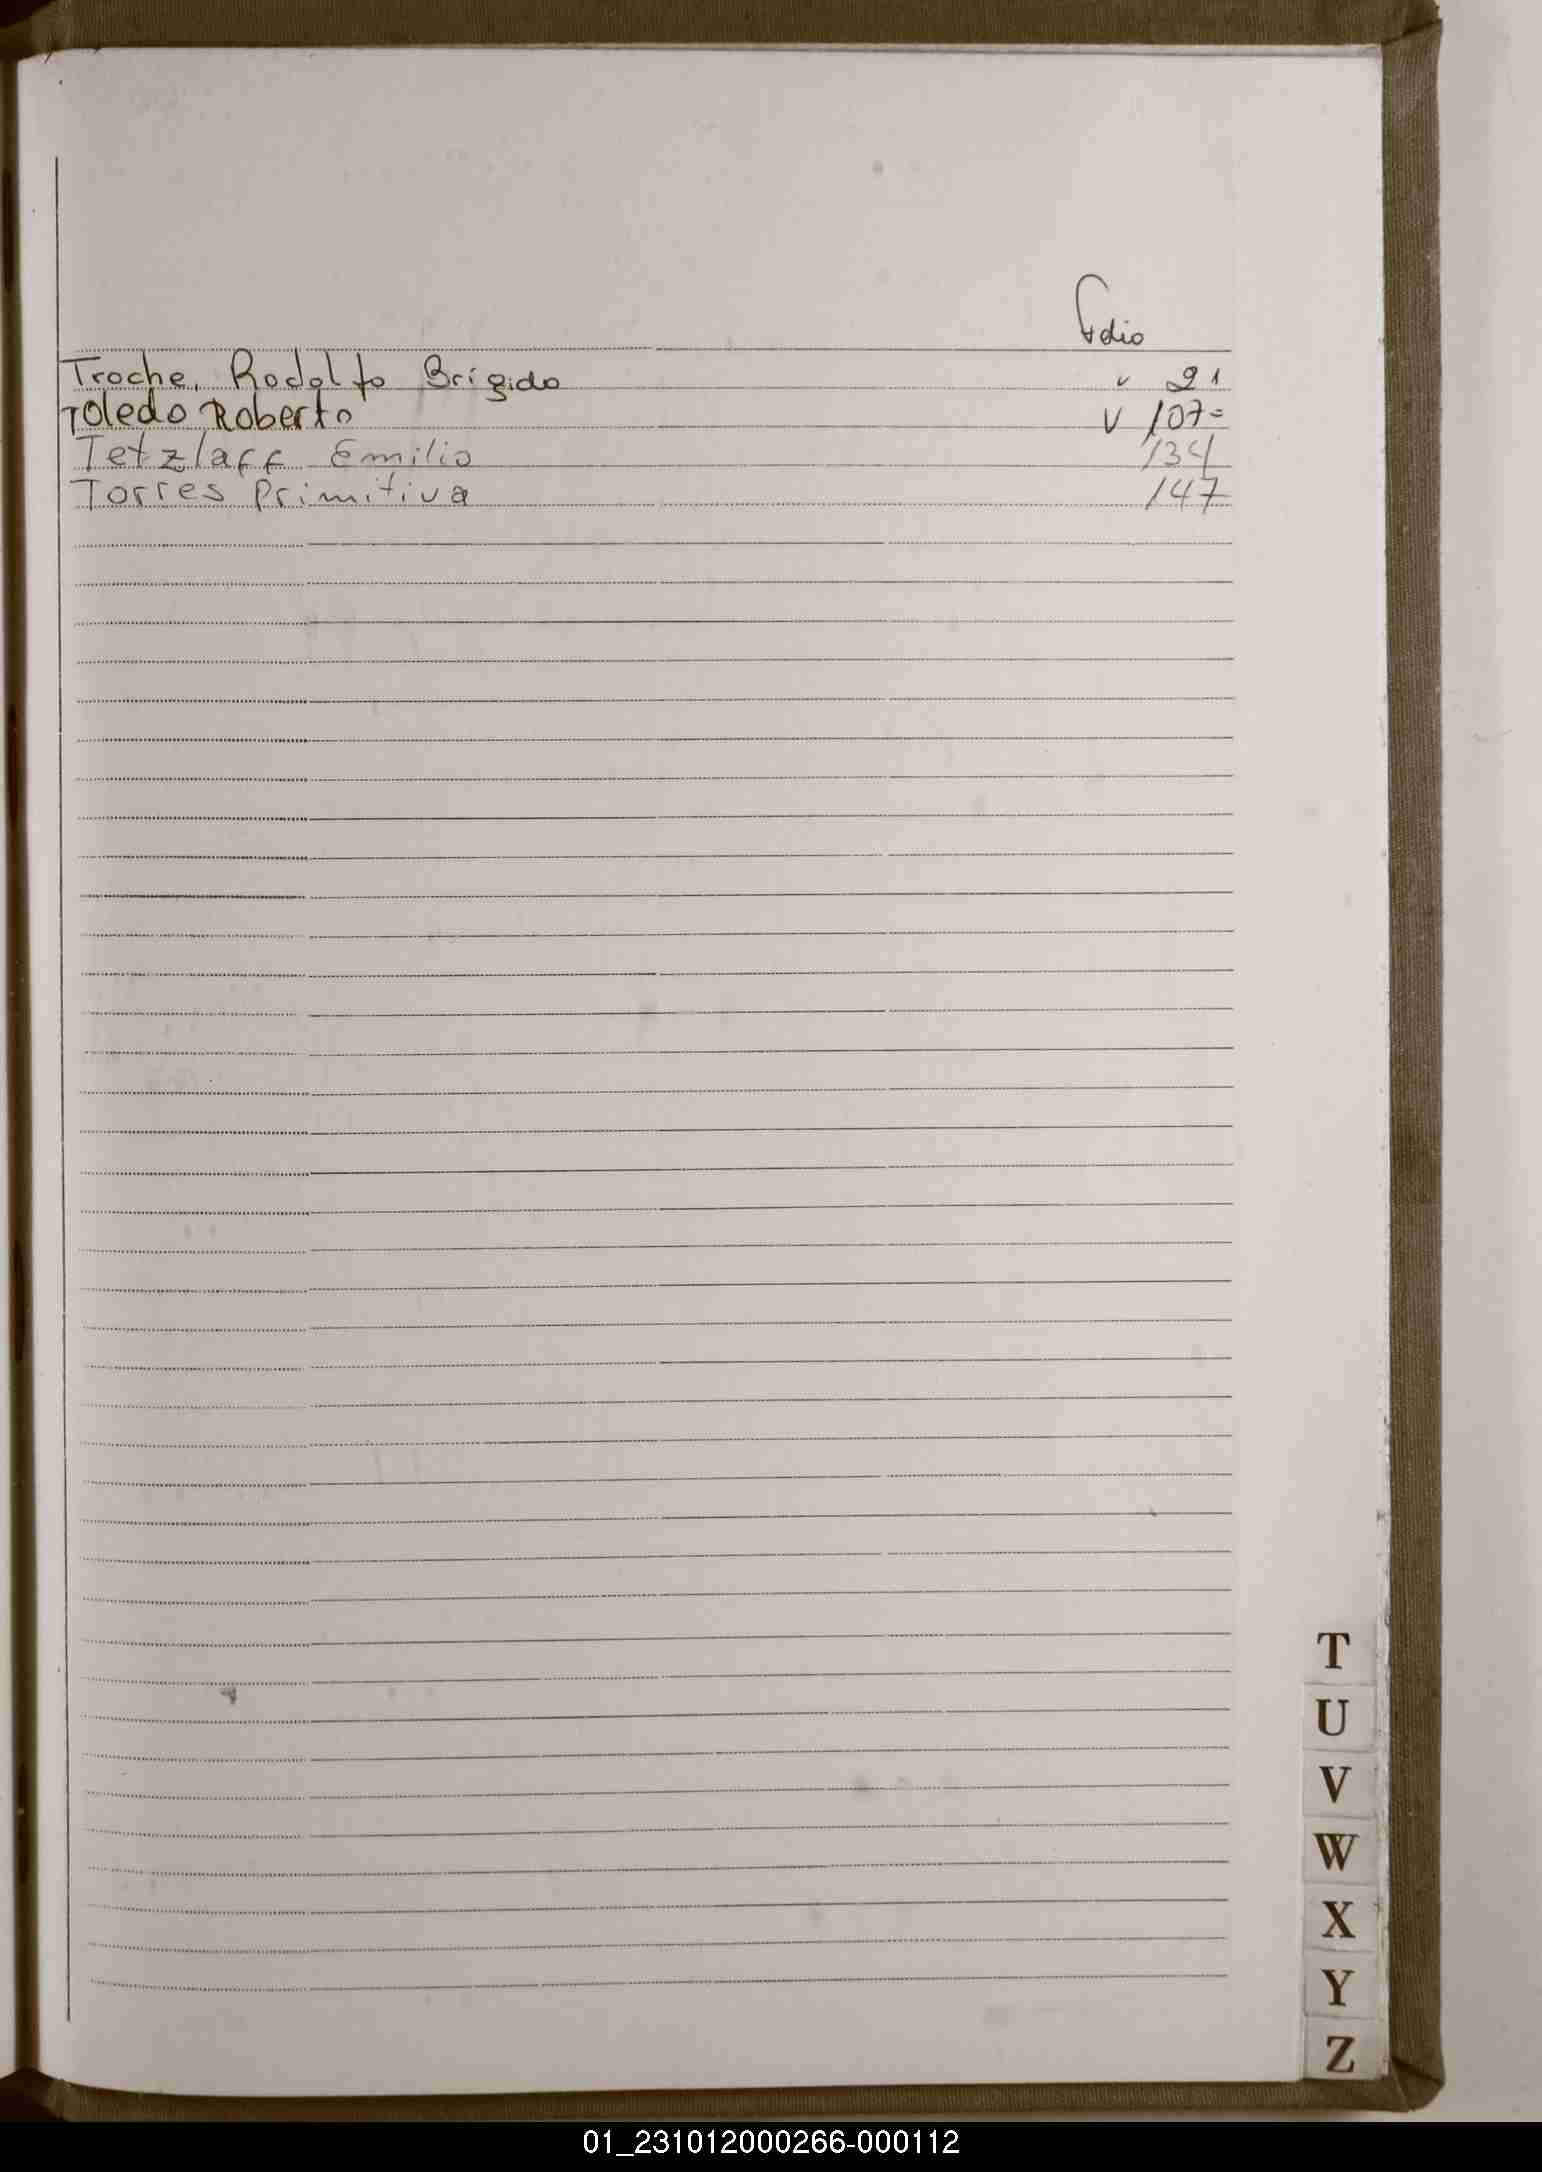 Folio
Troche, Rodolfo Brígido v 21
Toledo Roberto v 107=
Tetzlaff Emilio 134
Torres Primitiva 147
T
U
V
W
X
Y
Z
01_231012000266-000112